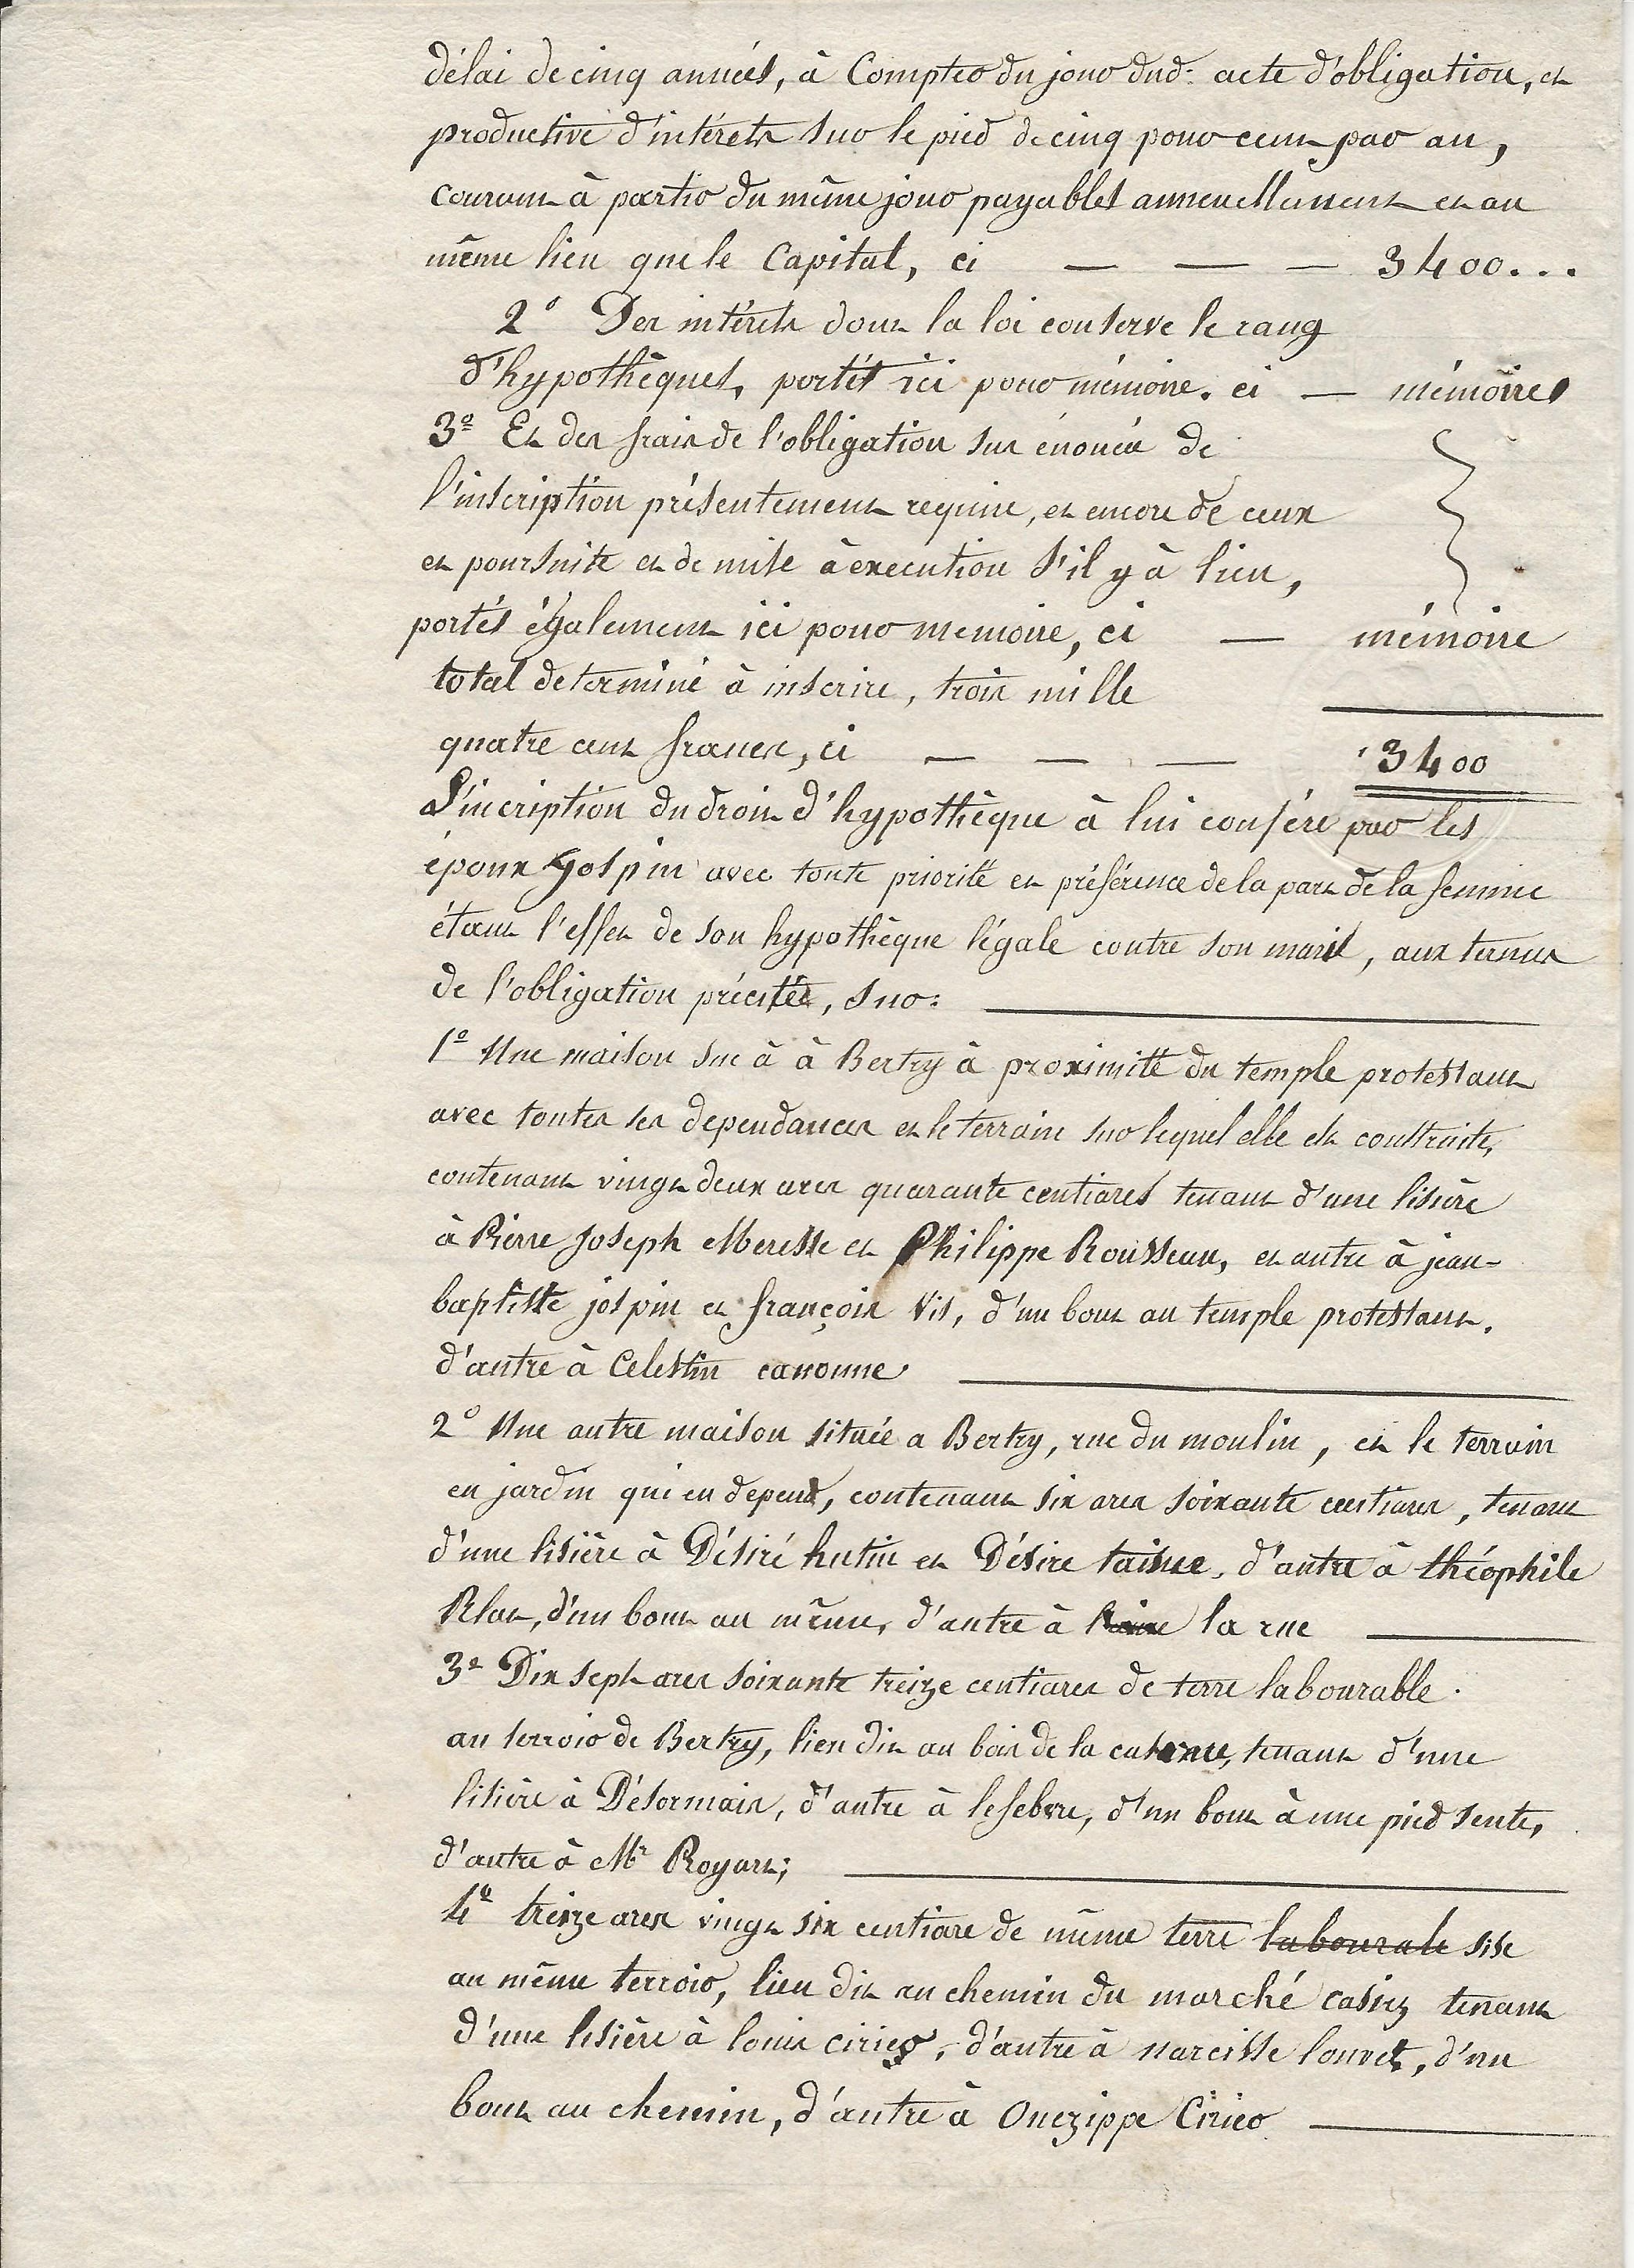 délai de cinq années, à Compter du jour dud: acte d'obligation, et
productive d'intérets sur le pied de cinq pour cent par an,
courant à partir du même jour payables annuellement et au
même lieu que le Capital, ci — — — 3400...
2° Des intérêts dont la loi conserve le rang
d'hypothèques, portés ici pour mémoire. ci — mémoires
3° Et des frais de l'obligation sus énoncée de
l'inscription présentement requise, et encore de ceux
et poursuite et de mise à execution s'il y à lieu,
portés également ici pour memoire, ci — mémoire
total determiné à inscrire, trois mille
quatre cent francs, ci — — — 3400
L'incription du droit d'hypothèque à lui conféré par les
époux Jospin avec toute priorité et préférence de la part de la femme
étant l'effet de son hypothèque légale contre son mari, aux termes
de l'obligation précitée, sur:
1° Une maison sise à à Bertry à proximité du temple protestant
avec toutes ses dependances et le terrain sur lequel elle est construite,
contenant vingt deux ares quarante centiares tenant d'une lisière
à Pierre Joseph Meresse et Philippe Rousseau, et autre à jean-
baptiste jospin et françois Vis, d'un bout au temple protestant.
d'autre à Celestin canonne
2° Une autre maison située a Bertry, rue du moulin, et le terrain
en jardin qui en depend, contenant six ares soixante centiares, tenant
d'une lisière à Désiré hutin et Désire taisne, d'autre à théophile
Plat, d'un bout au même, d'autre à la rue
3° Dix sept ares soixante treize centiares de terre labourable.
au terroir de Bertry, lieu dit au bois de la tenant d'une
lisière à Désormais, d'autre à lefebvre, d'un bout à une pied sente,
d'autre à Mr Royart;
4° treize ares vingt six centiare de même terre labourale sise
au même terroir, lieu dit au chemin du marché casiez tenant
d'une lisière à louis cirier, d'autre à narcisse louvet, d'un
bout au chemin, d'autre à Onezippe Cirier